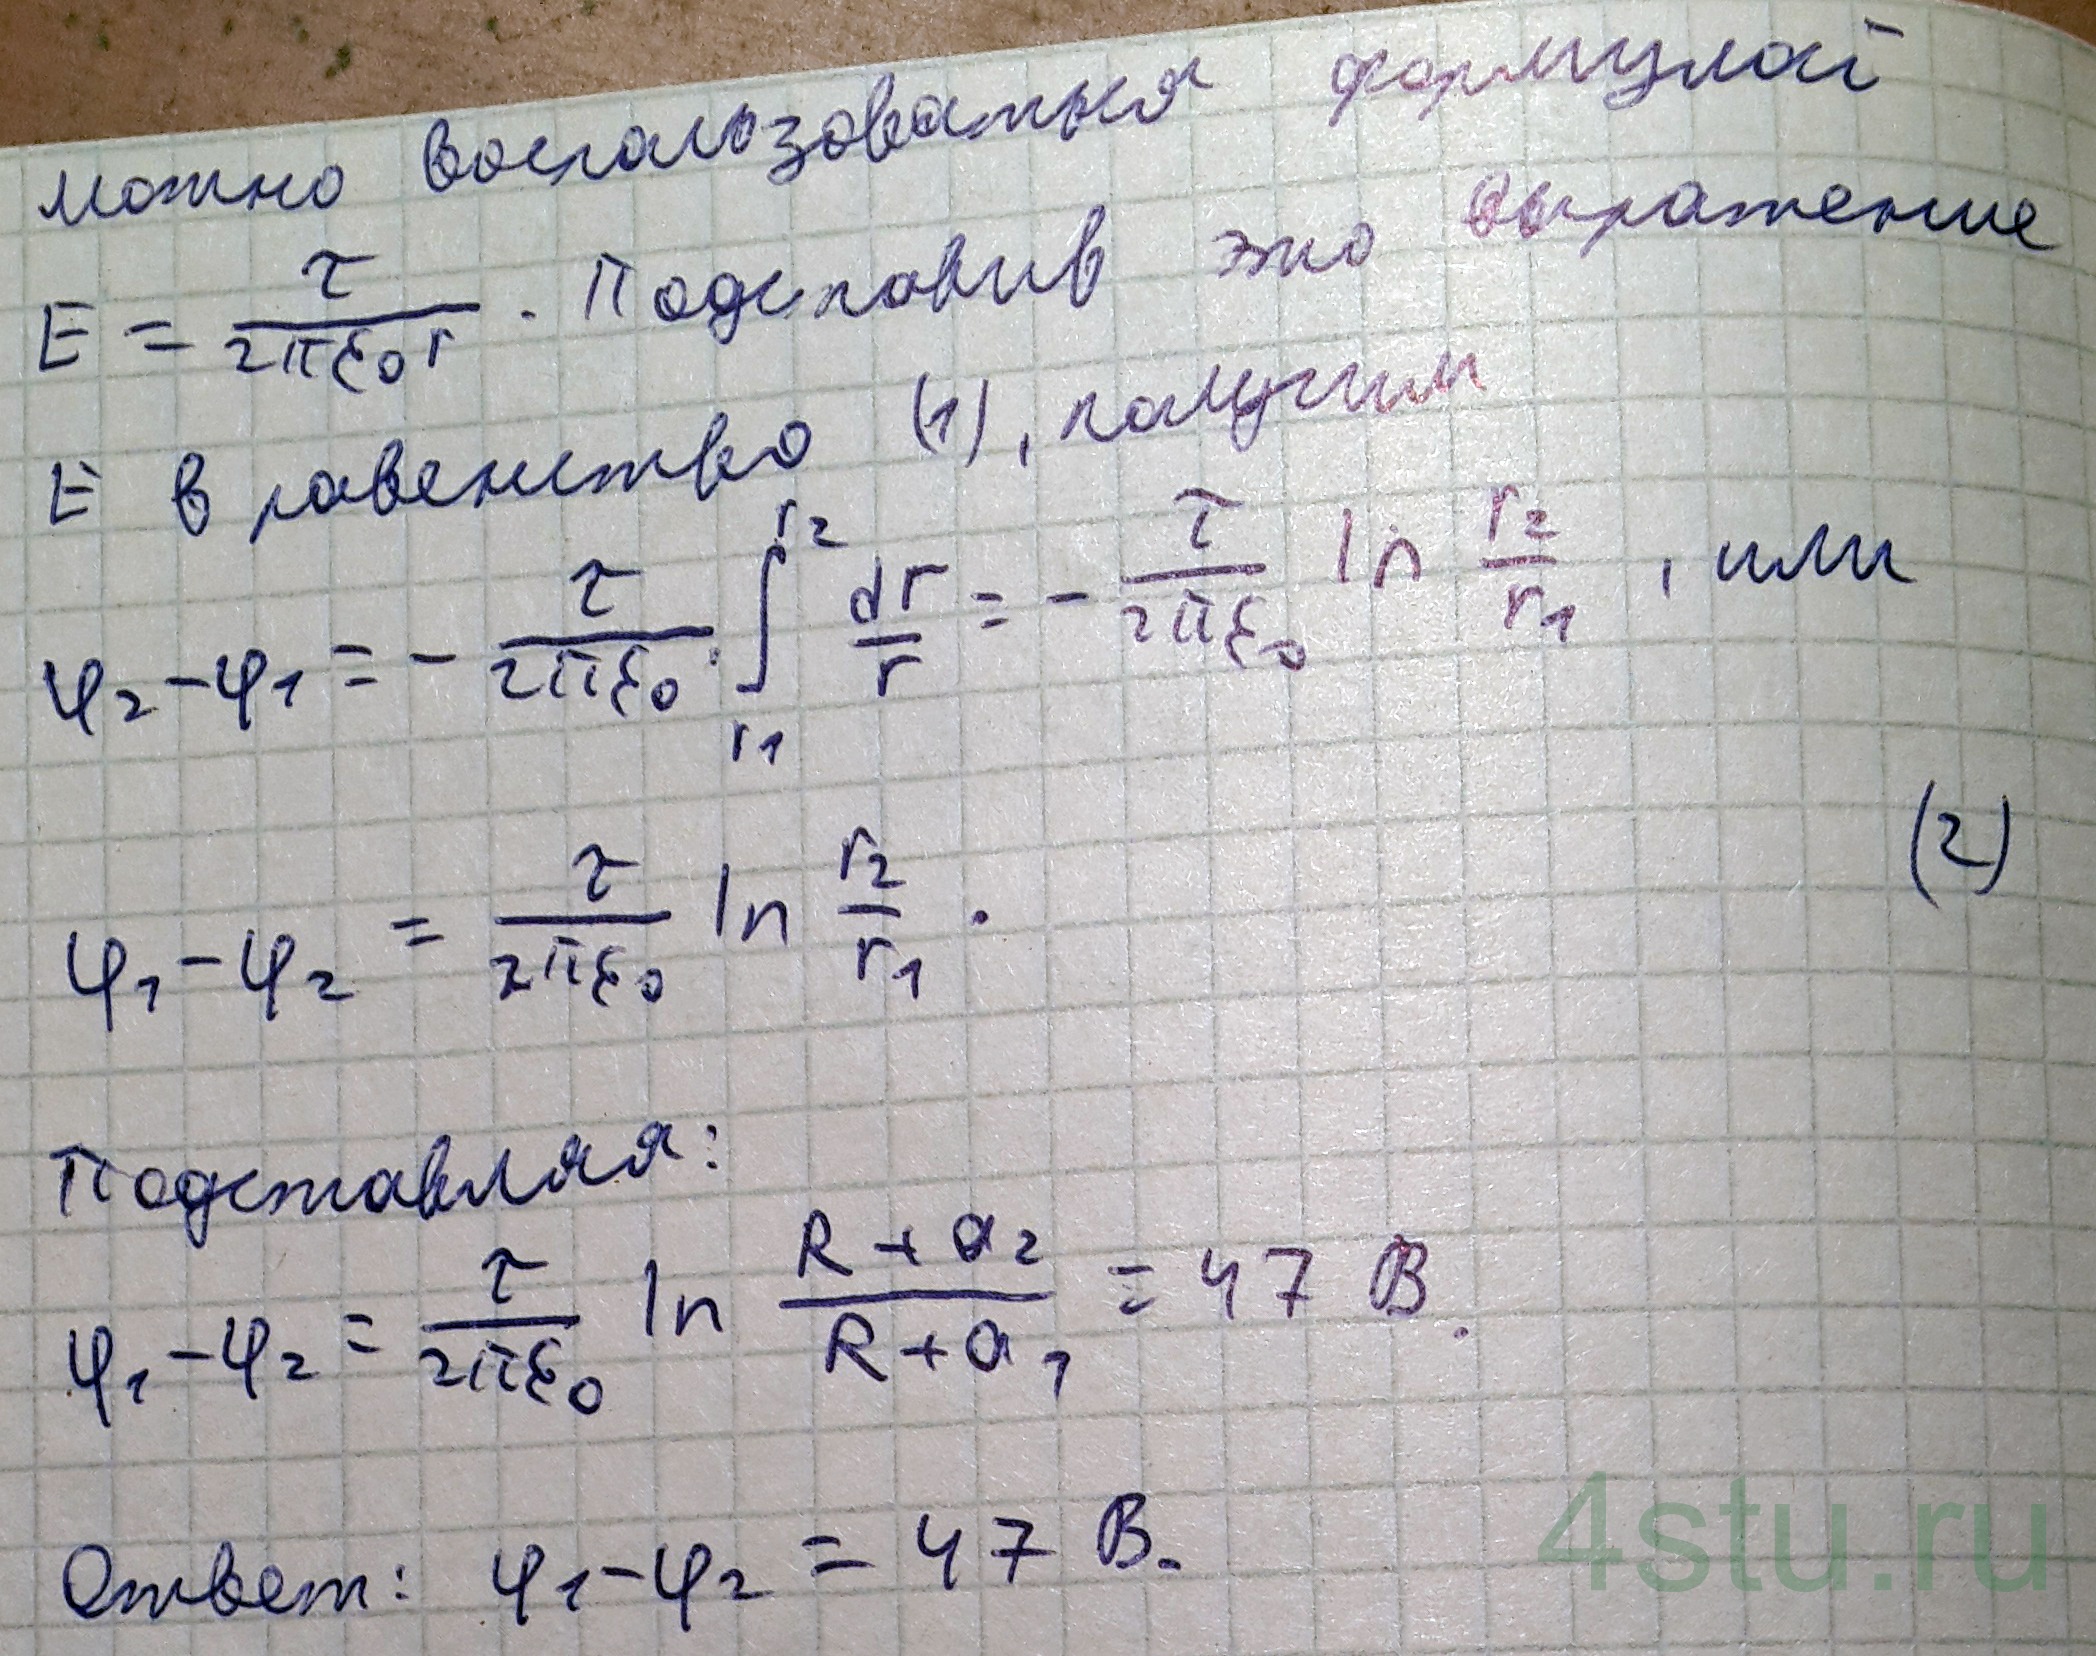 можно воспользоваться формулой
E = τ/(2πε₀r) . Подставив это выражение
E в равенство (1), получим
φ₂-φ₁ = - τ/(2πε₀) · ∫_{r₁}^{r₂} dr/r = - τ/(2πε₀) ln r₂/r₁ , или
φ₁-φ₂ = τ/(2πε₀) ln r₂/r₁ . (2)
Подставляя:
φ₁-φ₂ = τ/(2πε₀) ln (R+a₂)/(R+a₁) = 47 В.
Ответ: φ₁-φ₂ = 47 В.
4stu.ru